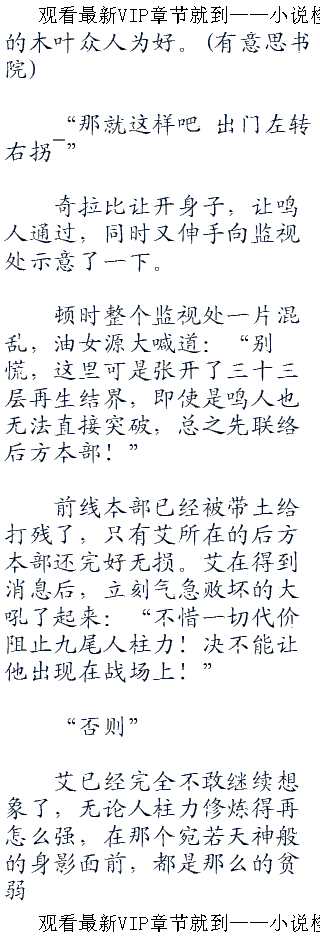 观看最新VIP章节就到——小说检
的木叶众人为好。(有意思书
院)
“那就这样吧 出门左转
右拐¯”
奇拉比让开身子，让鸣
人通过，同时又伸手向监视
处示意了一下。
顿时整个监视处一片混
乱，油女源大喊道：“别
慌，这里可是张开了三十三
层再生结界，即使是鸣人也
无法直接突破，总之先联络
后方本部！”
前线本部已经被带土给
打残了，只有艾所在的后方
本部还完好无损。艾在得到
消息后，立刻气急败坏的大
吼了起来：“不惜一切代价
阻止九尾人柱力！决不能让
他出现在战场上！”
“否则”
艾已经完全不敢继续想
象了，无论人柱力修炼得再
怎么强，在那个宛若天神般
的身影面前，都是那么的贫
弱
观看最新VIP章节就到——小说检